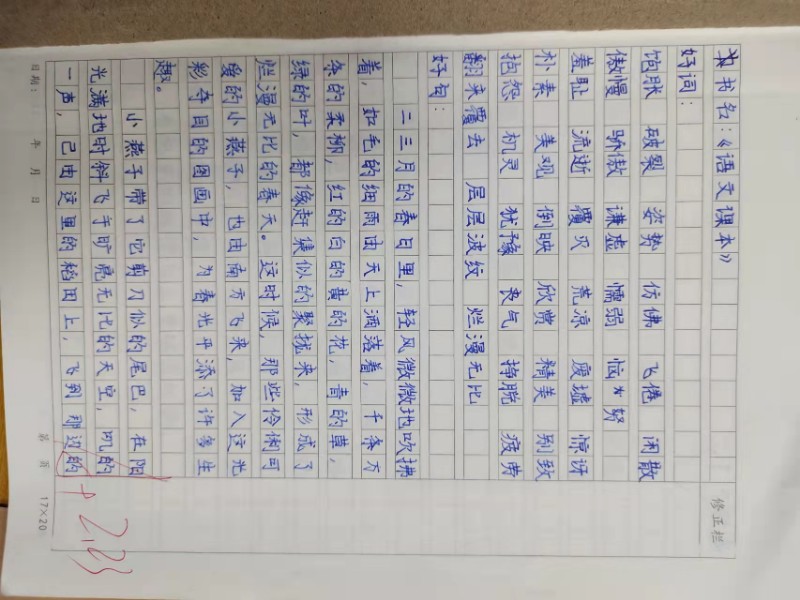 书名：《语文课本》
好词：
饱胀 破裂 姿势 仿佛 飞倦 闲散
傲慢 骄傲 谦虚 懦弱 恼
羞耻 流逝 覆灭 荒凉 废墟 惊讶
朴素 美观 倒映 欣赏 精美 别致
抱怨 机灵 犹豫 丧气 挣脱 疲劳
翻来覆去 层层波纹 烂漫无比
好句：
二三月的春日里，轻风微微地吹拂
着，如毛的细雨由天上洒落着，千条万
条的柔柳，红的白的黄的花，青的草，
绿的叶，都像赶集似的聚拢来，形成了
烂漫无比的春天。这时候，那些伶俐可
爱的小燕子，也由南方飞来，加入这光
彩夺目的图画中，为春光平添了许多生
趣。
小燕子带了它剪刀似的尾巴，在阳
光满地时斜飞于旷亮无比的天空，叽的
一声，已由这里的稻田上，飞到那边的
日期： 年 月 日
第 页 17×20
修正栏